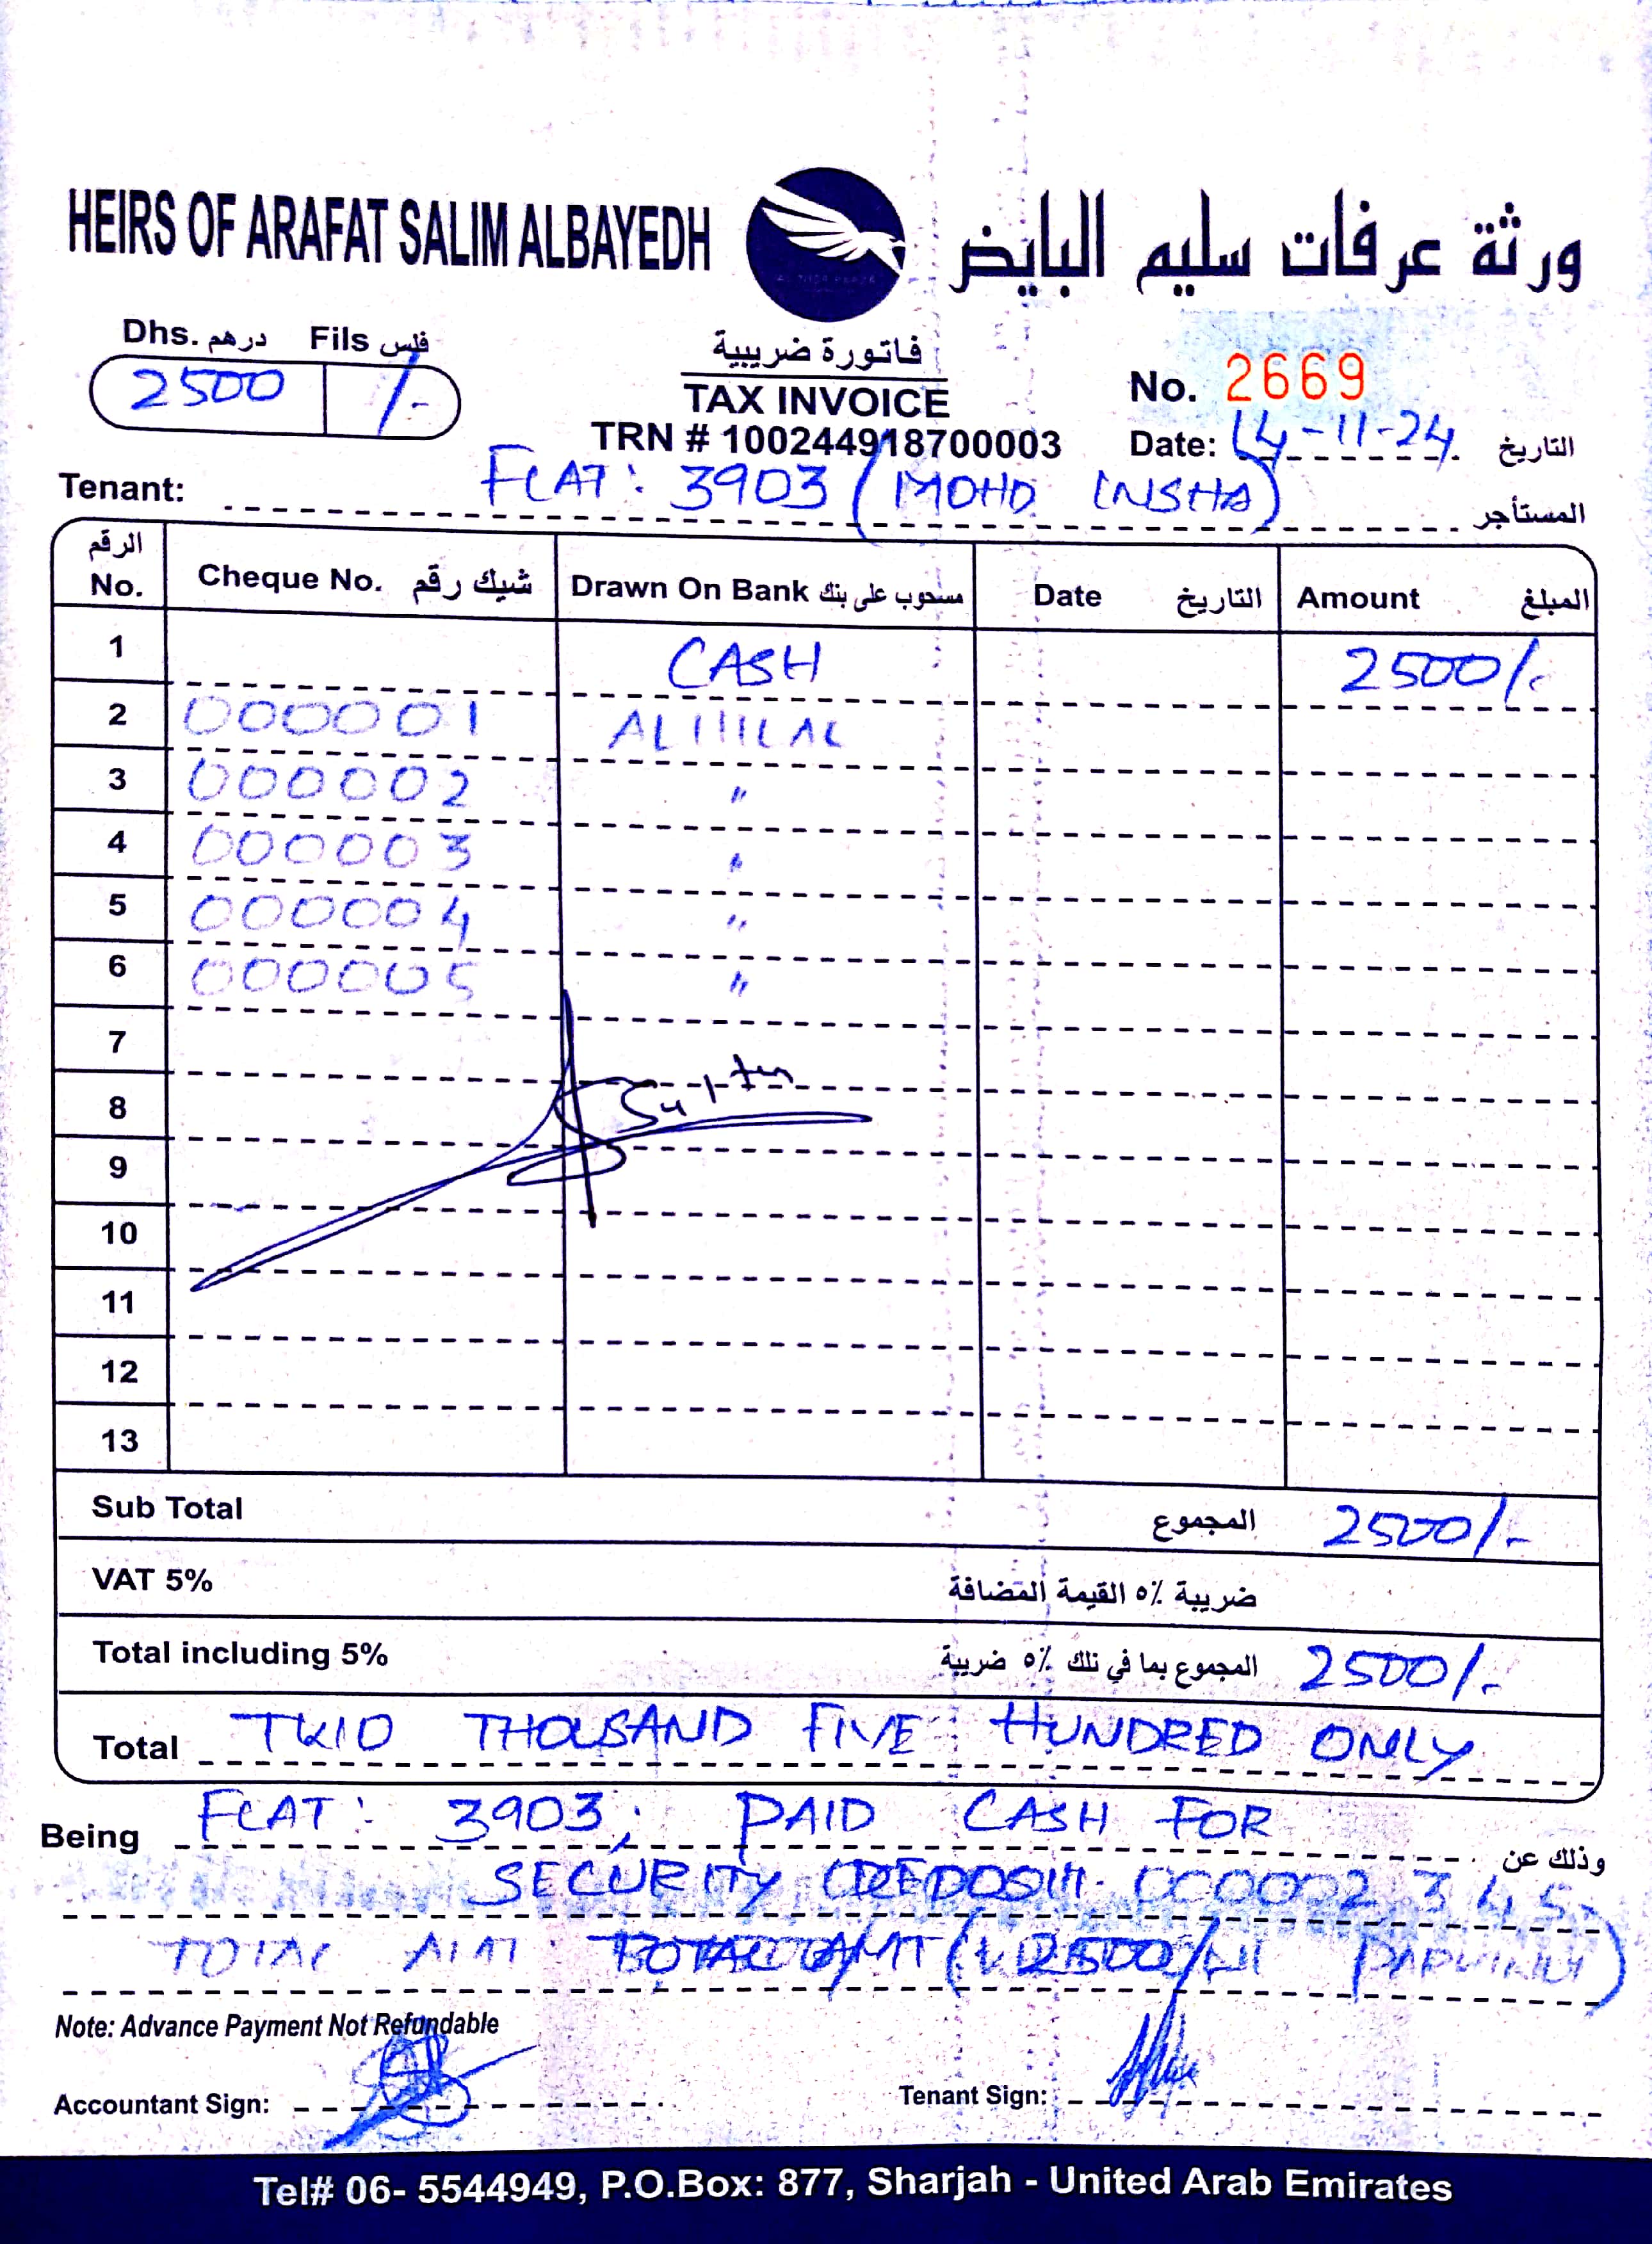 HEIRS OF ARAFAT SALIM ALBAYEDH ورثة عرفات سليم البايض
Dhs. درهم Fils فلس
2500 /-
فاتورة ضريبية
TAX INVOICE
TRN # 100244918700003
No. 2669
Date: 14-11-24 التاريخ
Tenant: FLAT: 3903 (MOHD INSHA) المستأجر
الرقم No. Cheque No. شيك رقم Drawn On Bank مسحوب على بنك Date التاريخ Amount المبلغ
1 CASH 2500/-
2 000001
3 000002 "
4 000003 "
5 000004 "
6 000005 "
7
8
9
10
11
12
13
Sub Total المجموع 2500/-
VAT 5% ضريبة ٥٪ القيمة المضافة
Total including 5% المجموع بما في تلك ٥٪ ضريبة 2500/-
Total TWO THOUSAND FIVE HUNDRED ONLY
Being FLAT: 3903; PAID CASH FOR وذلك عن
SECURITY 000002 3 4 5
TOTAL AMT TOTAL AMT ( 2500/
Note: Advance Payment Not Refundable
Accountant Sign: Tenant Sign:
Tel# 06- 5544949, P.O.Box: 877, Sharjah - United Arab Emirates